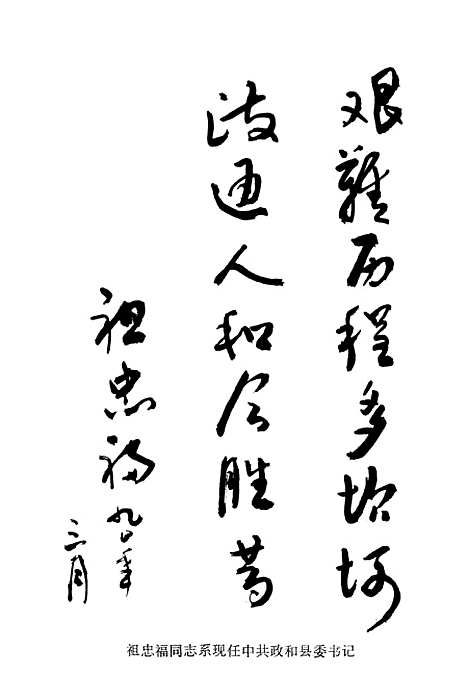 艰難历程多坎坷
政通人和今胜昔
祖忠福 九〇年
三月
祖忠福同志系现任中共政和县委书记